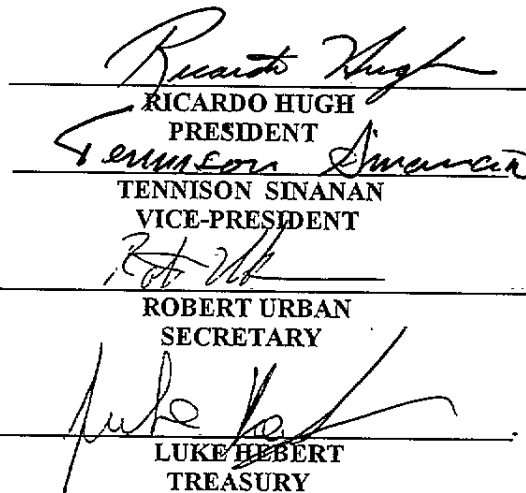 Ricardo Hugh
RICARDO HUGH
PRESIDENT
Tennison Sinanan
TENNISON SINANAN
VICE-PRESIDENT
ROBERT URBAN
SECRETARY
Luke
LUKE HEBERT
TREASURY